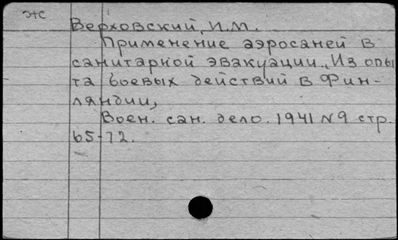 ЖС
Верховский, И.М.
Применение аэросаней в
санитарной эвакуации. Из опы
та боевых действий в Фин-
ляндии,
Воен. сан. дело. 1941 №9 стр.
65-72.